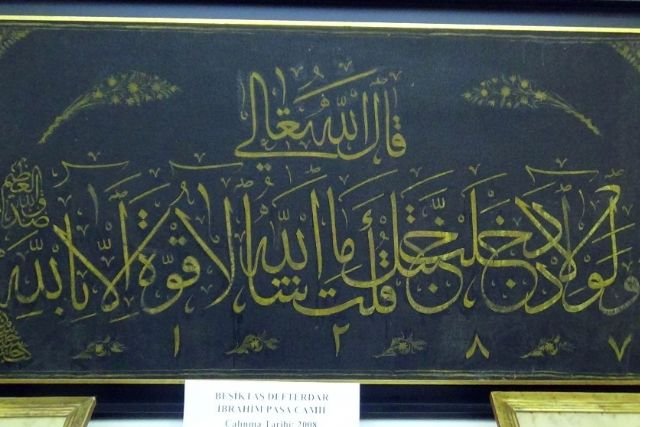 قال الله تعالى
ولولا إذ دخلت جنتك قلت ما شاء الله لا قوة إلا بالله
صدق الله العظيم
١٢٨٧
BEŞİKTAŞ DEFTERDAR
İBRAHİM PAŞA CAMİİ
Çalınma Tarihi: 2008